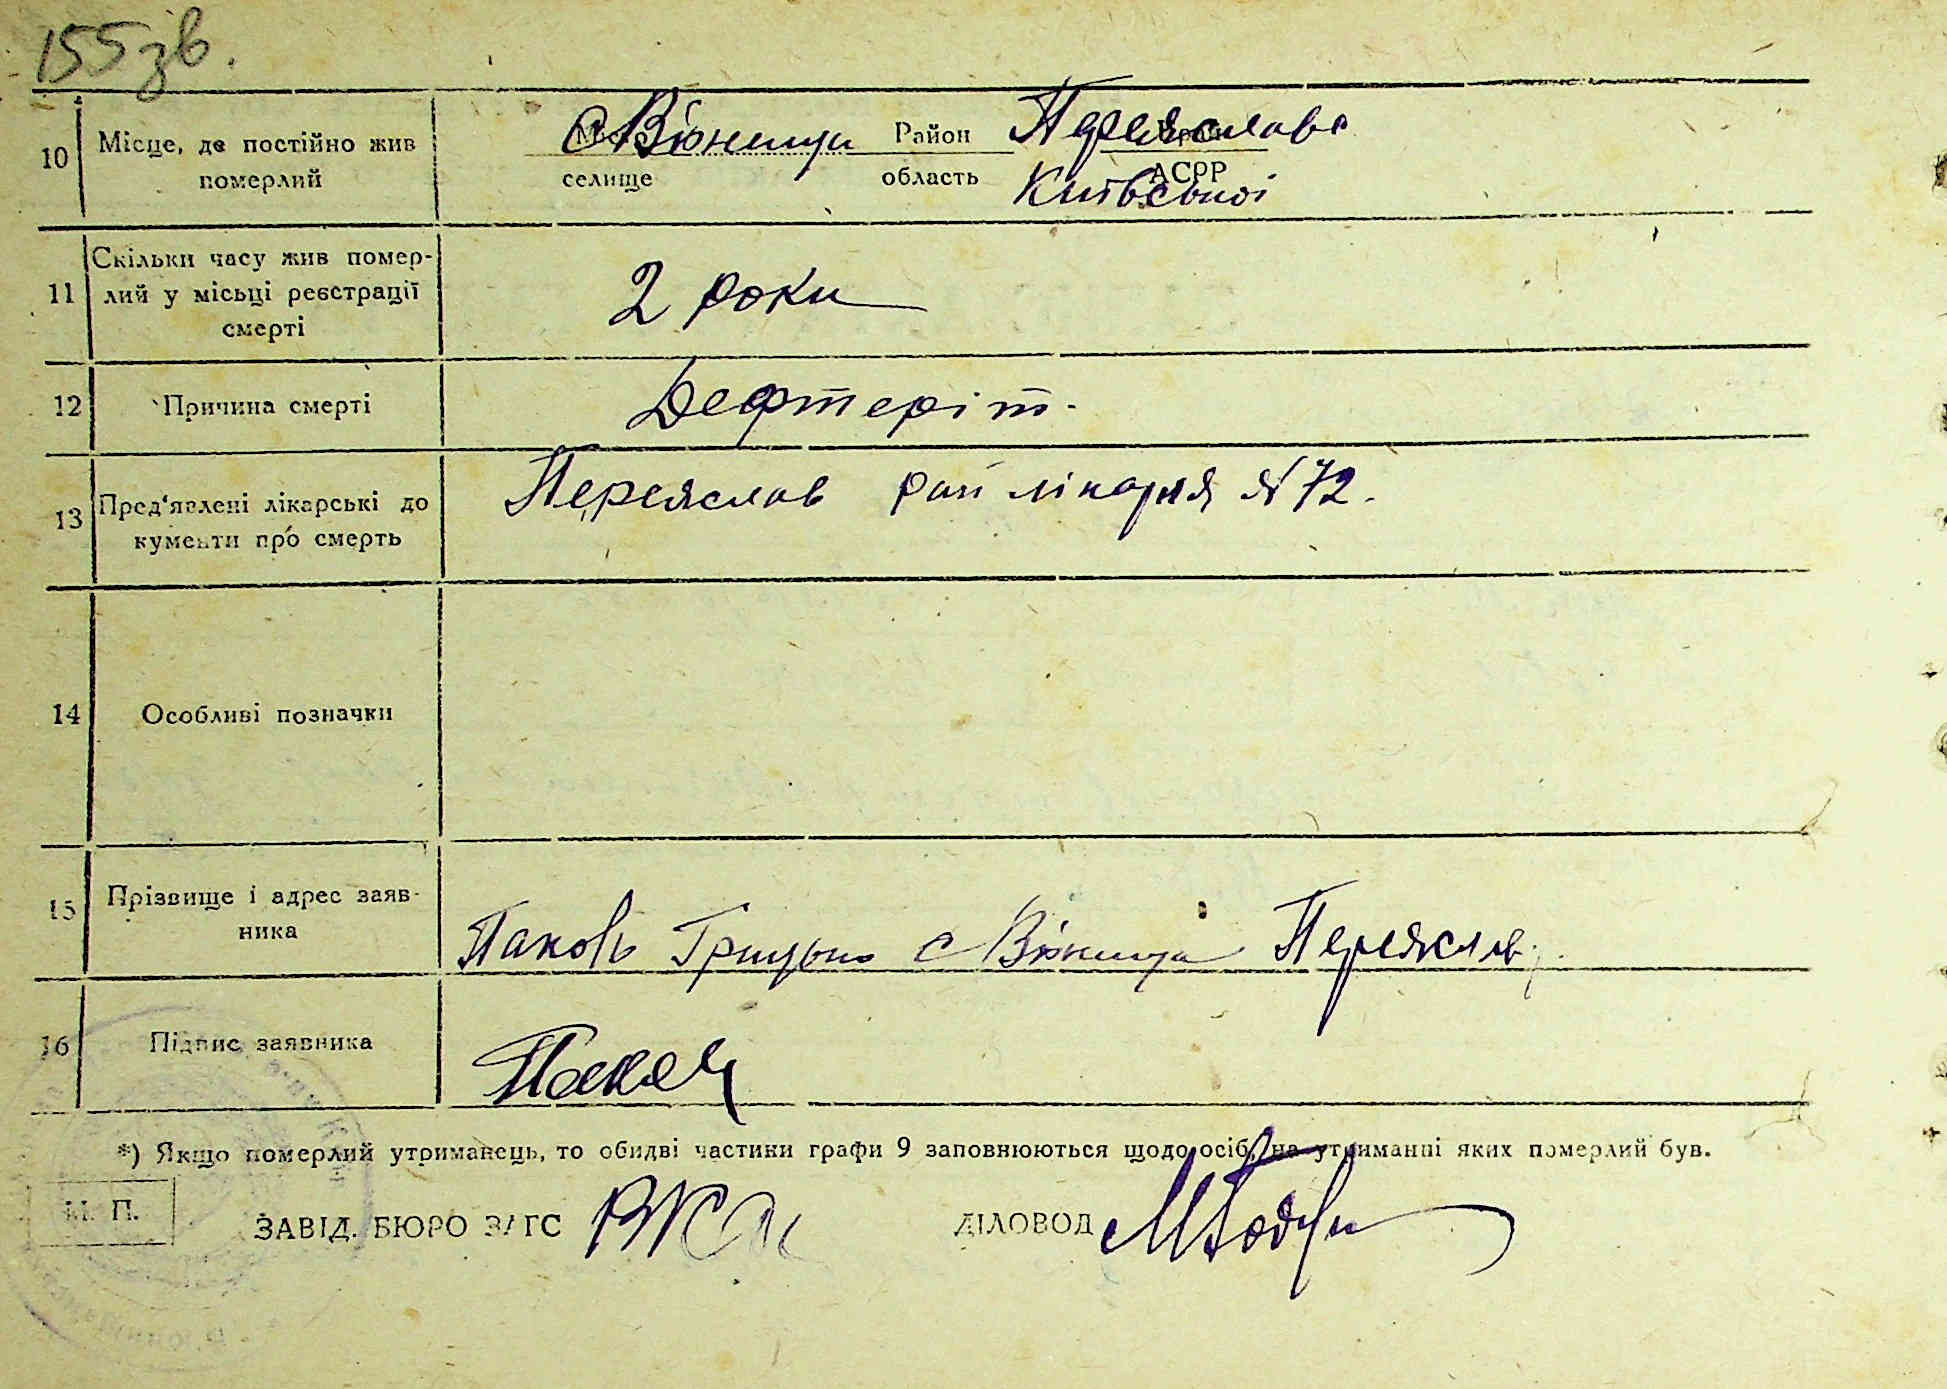 155зв.
10 Місце, де постійно жив померлий
с Вюнища Район Переяславс
селище область АСРР
Київської
11 Скільки часу жив помер-
лий у місьці реєстрації
смерті
2 роки
12 Причина смерті
Дефтеріт.
13 Пред'явлені лікарські до
кументи про смерть
Переяслав рай лікарня №72.
14 Особливі позначки
15 Прізвище і адрес заяв-
ника
Грицько с Вюнища Переяслав.
16 Підпис заявника
*) Якщо померлий утриманець, то обидві частини графи 9 заповнюються щодо осіб, на утриманні яких померлий був.
М. П.
ЗАВІД. БЮРО ЗАГС ДІЛОВОД